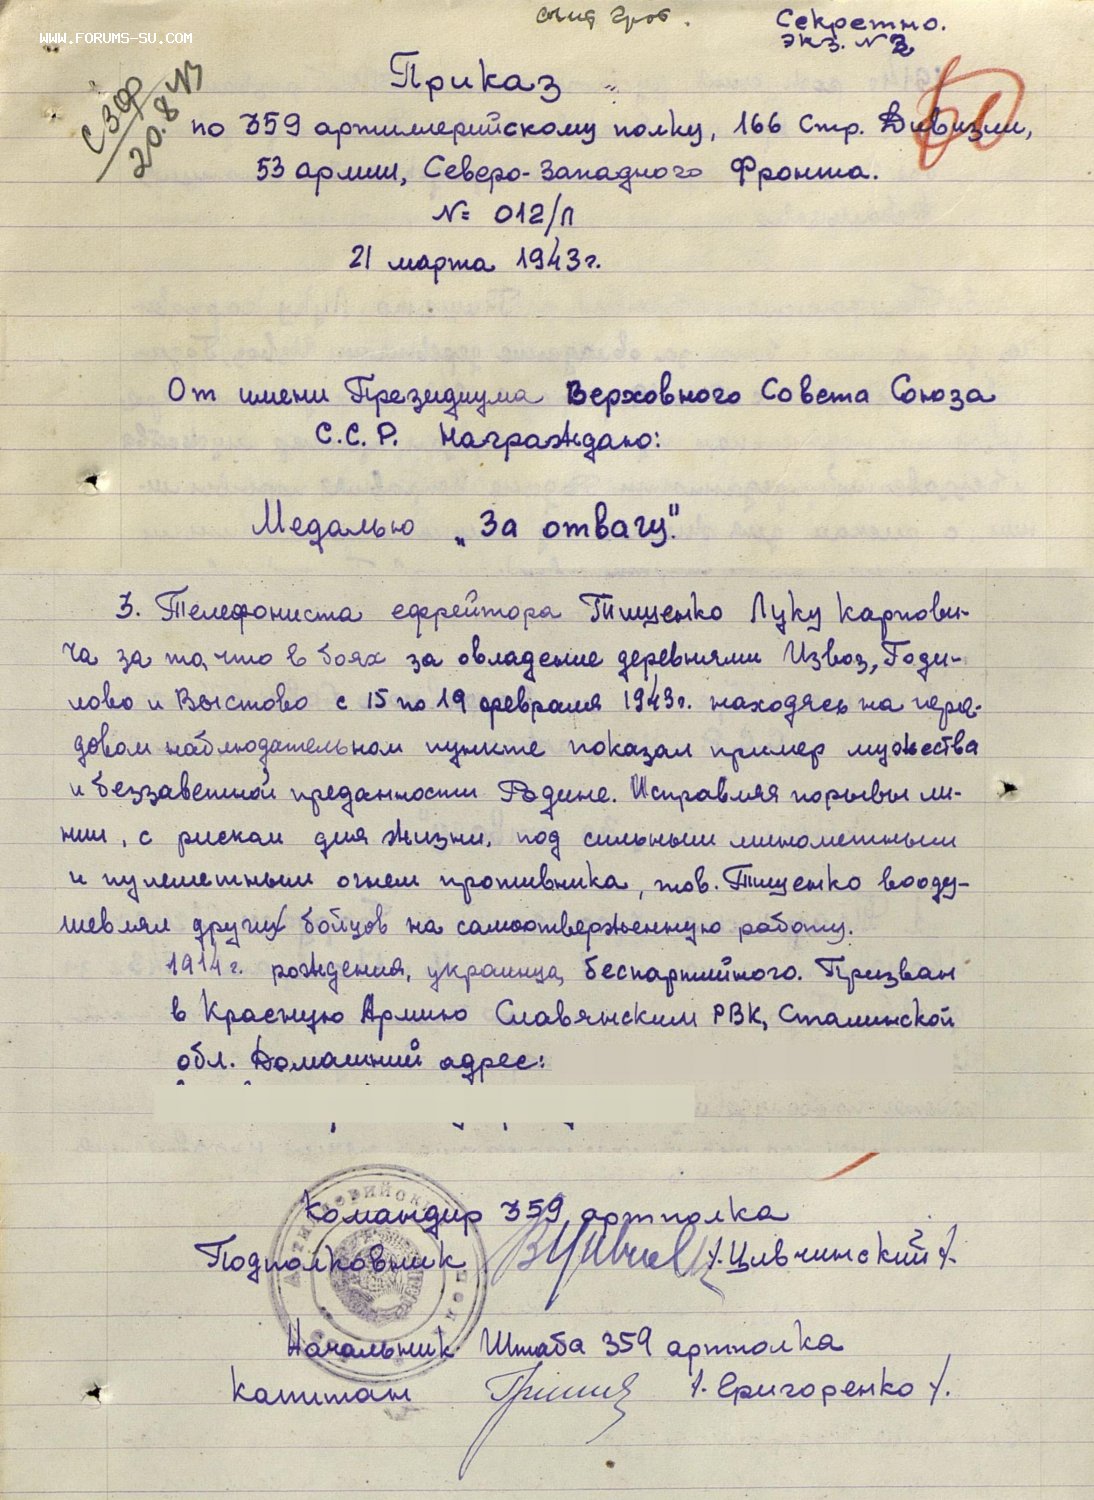 WWW.FORUMS-SU.COM
Секретно.
экз. №2
СЗФ
20.8
60
Приказ
по 359 артиллерийскому полку, 166 Стр. Дивизии,
53 армии, Северо-Западного Фронта.
№ 012/п
21 марта 1943г.
От имени Президиума Верховного Совета Союза
С.С.Р. Награждаю:
Медалью „За отвагу".
3. Телефониста ефрейтора Тищенко Луку Карпови-
ча за то, что в боях за овладение деревнями Извоз, Годи-
лово и Выстово с 15 по 19 февраля 1943г. находясь на пере-
довом наблюдательном пункте показал пример мужества
и беззаветной преданности Родине. Исправляя порывы ли-
нии, с риском для жизни, под сильным минометным
и пулеметным огнем противника, тов. Тищенко вооду-
шевлял других бойцов на самоотверженную работу.
1914г. рождения, украинца, беспартийного. Призван
в Красную Армию Славянским РВК, Сталинской
обл. Домашний адрес:
Командир 359 артполка
Подполковник /.Цивчинский/.
Начальник Штаба 359 артполка
Капитан /.Григоренко/.